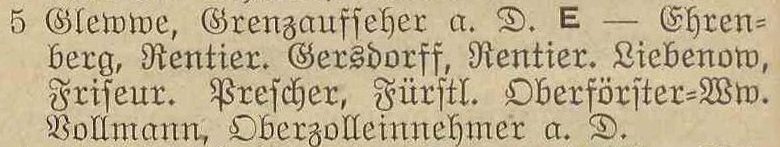 5 Glewwe, Grenzaufseher a. D. E — Ehren-
berg, Rentier. Gersdorff, Rentier. Liebenow,
Friseur. Prescher, Fürstl. Oberförster-Ww.
Vollmann, Oberzolleinnehmer a. D.